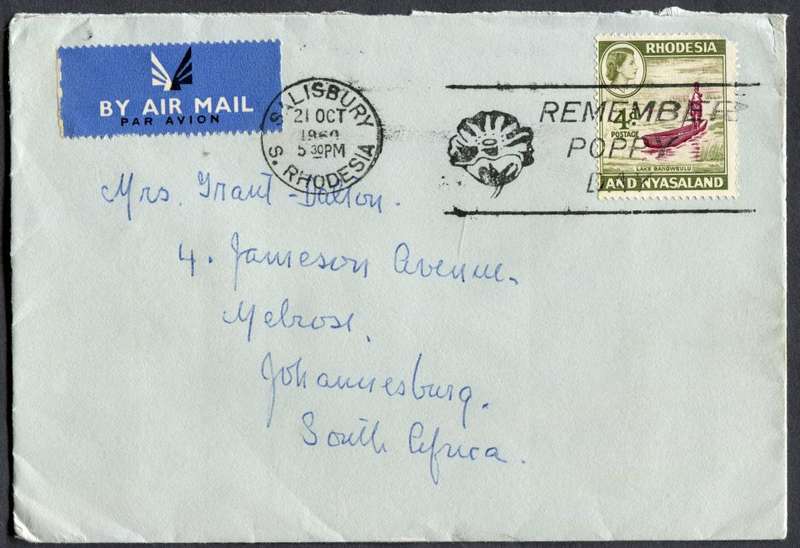 BY AIR MAIL
PAR AVION
SALISBURY
21 OCT
1960
5 30PM
S. RHODESIA
REMEMBER
POPPY
DAY
RHODESIA
4d
POSTAGE
LAKE BANGWEULU
AND NYASALAND
Mrs. Grant-Dalton.
4. Jameson Avenue.
Melrose.
Johannesburg.
South Africa.